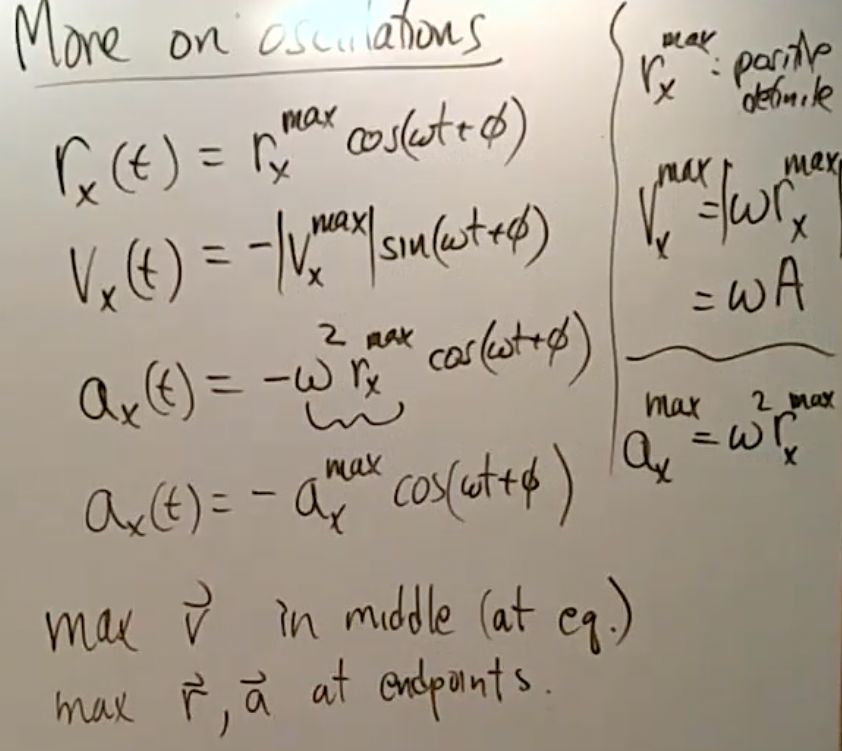 More on oscillations
r_x(t) = r_x^max cos(ωt+φ)
V_x(t) = -|V_x^max| sin(ωt+φ)
a_x(t) = -ω² r_x^max cos(ωt+φ)
a_x(t) = - a_x^max cos(ωt+φ)
max v⃗ in middle (at eq.)
max r⃗, a⃗ at endpoints.
r_x^max : positive
definite
V_x^max = |ω r_x^max|
= ωA
a_x^max = ω² r_x^max